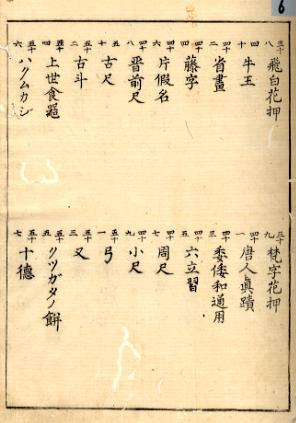 6
三十八 飛白花押
三十九 梵字花押
四十 牛王
四十一 唐人眞蹟
四十二 省畫
四十三 委倭和通用
四十四 藤字
四十五 六立習
四十六 片假名
四十七 周尺
四十八 晋前尺
四十九 小尺
五十 古尺
五十一 弓
五十二 古斗
五十三 又
五十四 上世食器
五十五 クツガタノ餅
五十六 ハクムカシ
五十七 十德